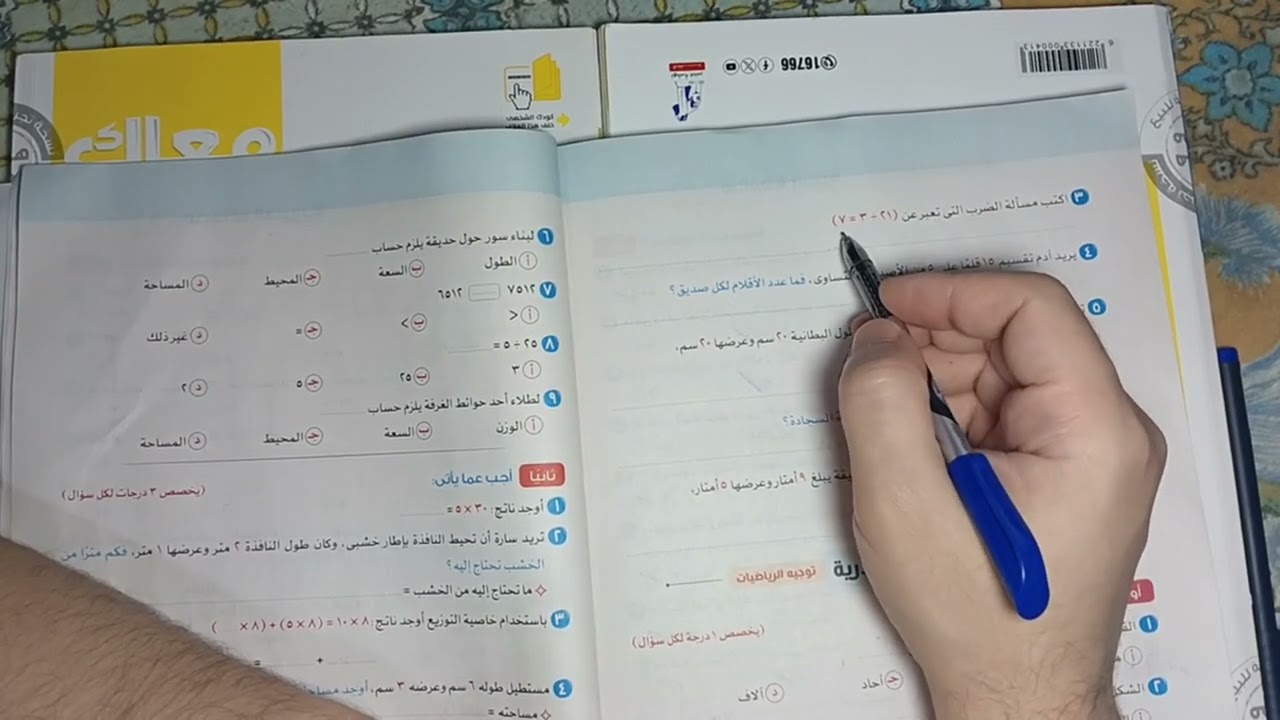 16766
6 221133 000413
معاك
كودك الشخصي
٣ اكتب مسألة الضرب التى تعبر عن (٢١ ÷ ٣ = ٧)
٤ يريد آدم تقسيم ١٥ قلمًا على ٥ من
فما عدد الأقلام لكل صديق؟
٥
ول البطانية ٢٠ سم وعرضها ٢٠ سم.
السجادة؟
يقة يبلغ ٩ أمتار وعرضها ٥ أمتار.
درية توجيه الرياضيات
أو
(يخصص ١ درجة لكل سؤال)
١
أ
جـ آحاد
د آلاف
٢ الشكل
٦ لبناء سور حول حديقة يلزم حساب
أ الطول ب السعة جـ المحيط د المساحة
٧ ٧٥١٢ ٦٥١٢
أ < ب > جـ = د غير ذلك
٨ ٢٥ ÷ ٥ =
أ ٣ ب ٢٥ جـ ٥ د ٢
٩ لطلاء أحد حوائط الغرفة يلزم حساب
أ الوزن ب السعة جـ المحيط د المساحة
ثانيًا أجب عما يأتى: (يخصص ٣ درجات لكل سؤال)
١ أوجد ناتج: ٣٠ × ٥ =
٢ تريد سارة أن تحيط النافذة بإطار خشبى، وكان طول النافذة ٢ متر وعرضها ١ متر، فكم مترًا من
الخشب تحتاج إليه؟
ما تحتاج إليه من الخشب =
٣ باستخدام خاصية التوزيع أوجد ناتج: ٨ × ١٠ = (٨ × ٥) + (٨ × )
+ =
٤ مستطيل طوله ٦ سم وعرضه ٣ سم، أوجد
مساحته =